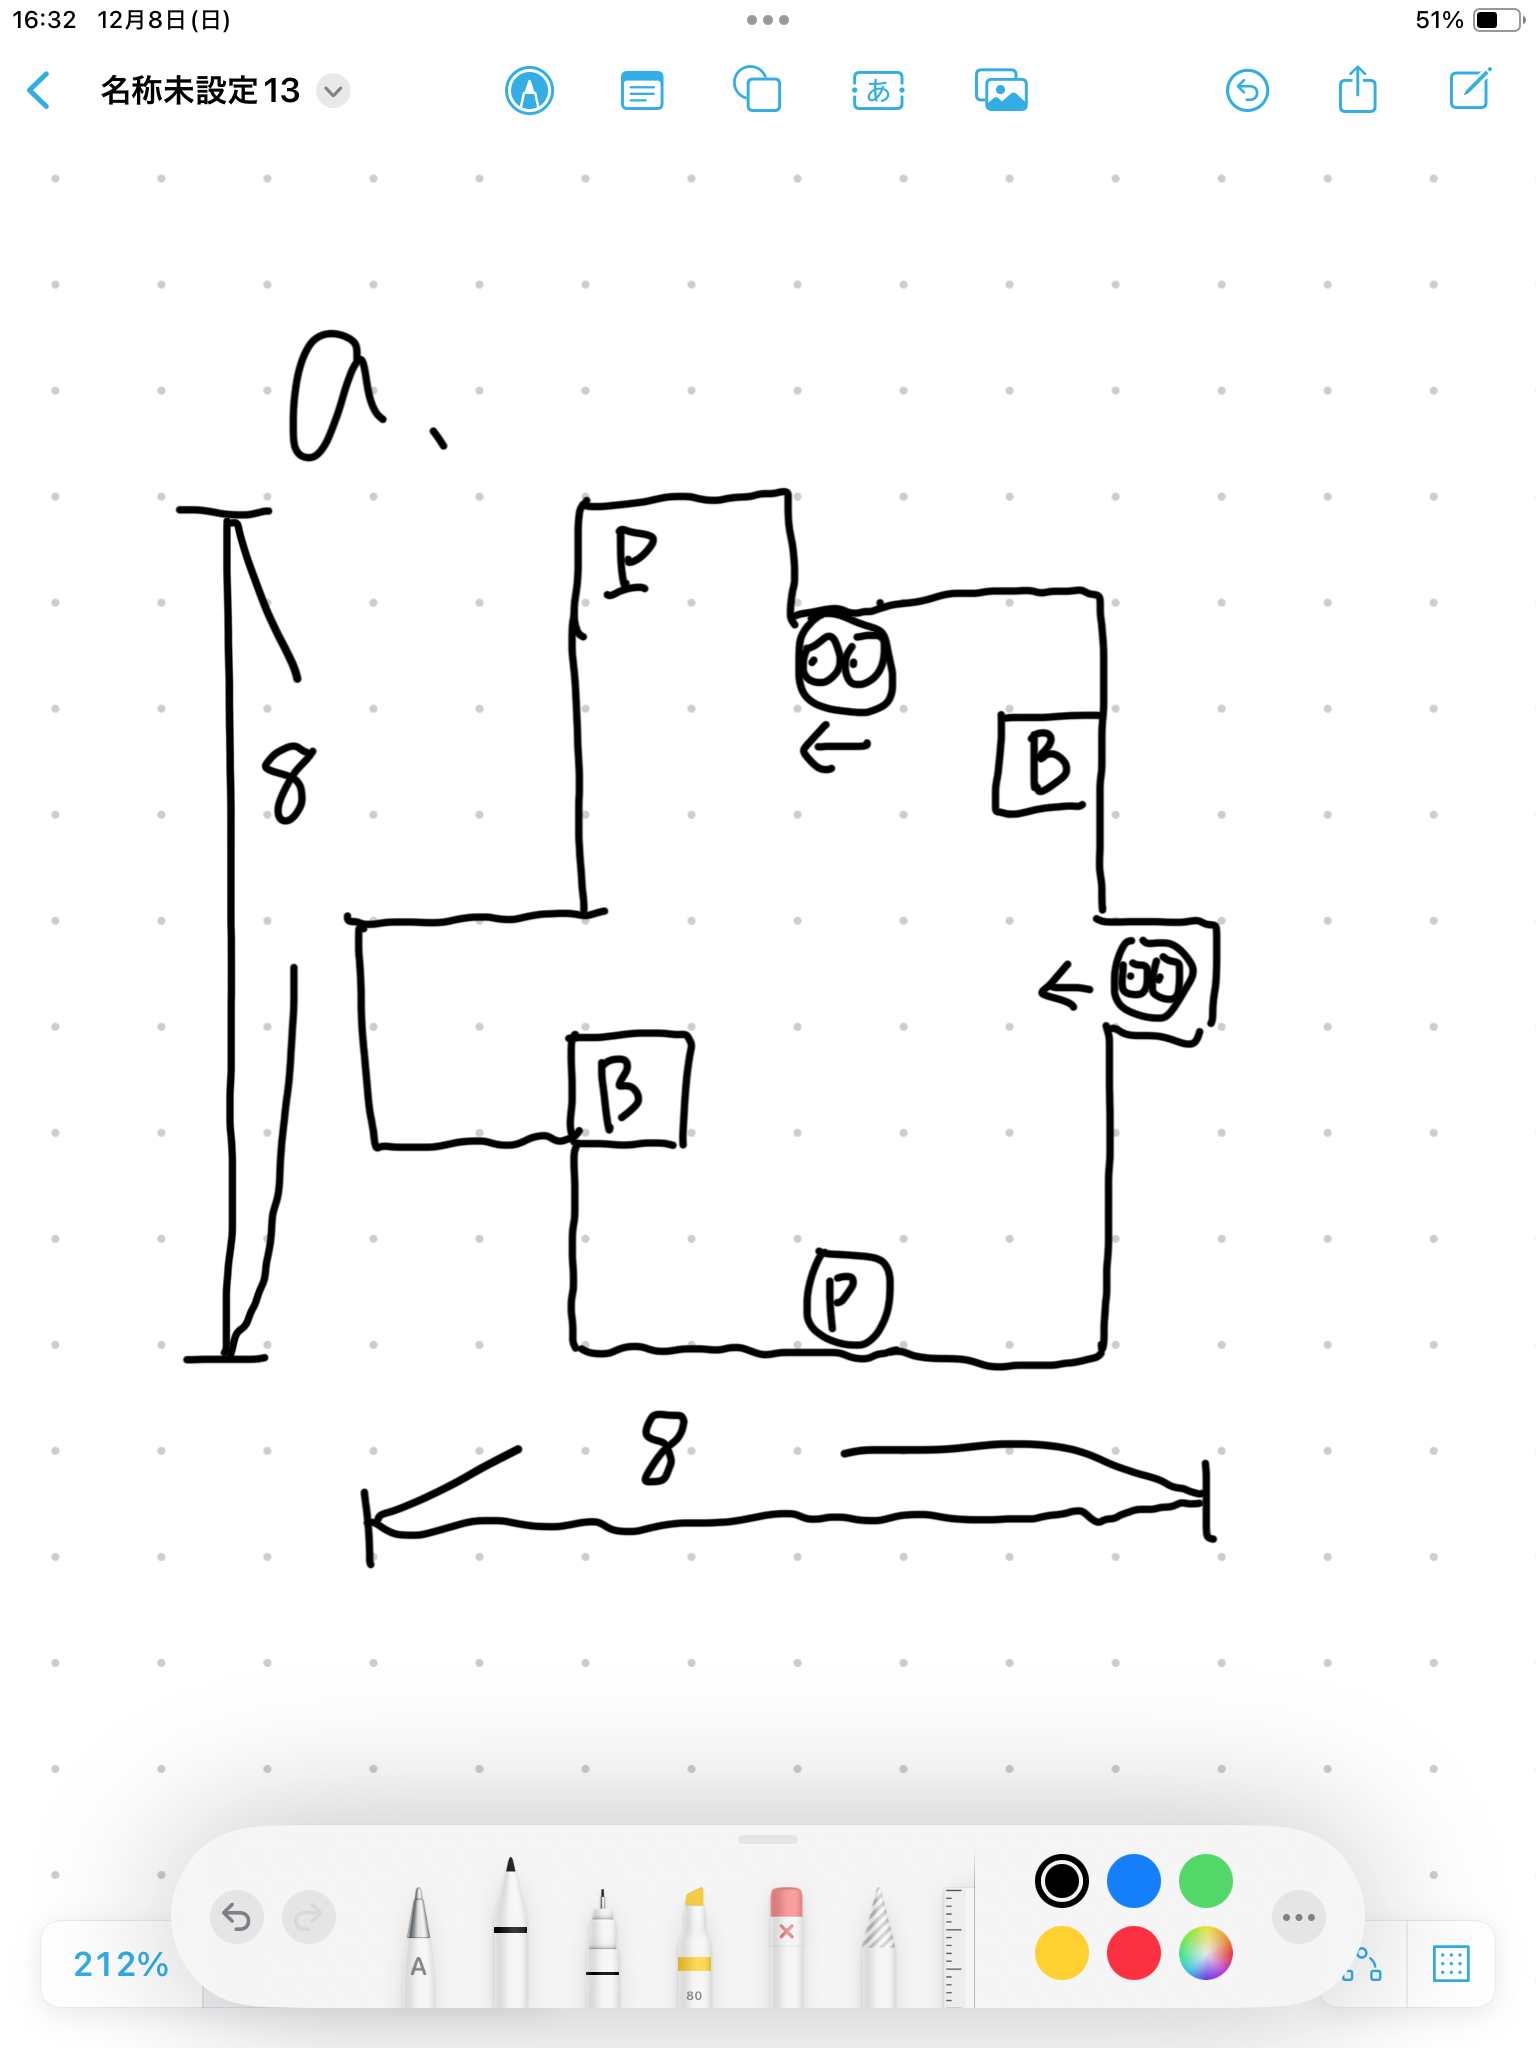 16:32 12月8日(日)
51%
名称未設定13
あ
a、
P
B
8
B
P
8
212%
A
80